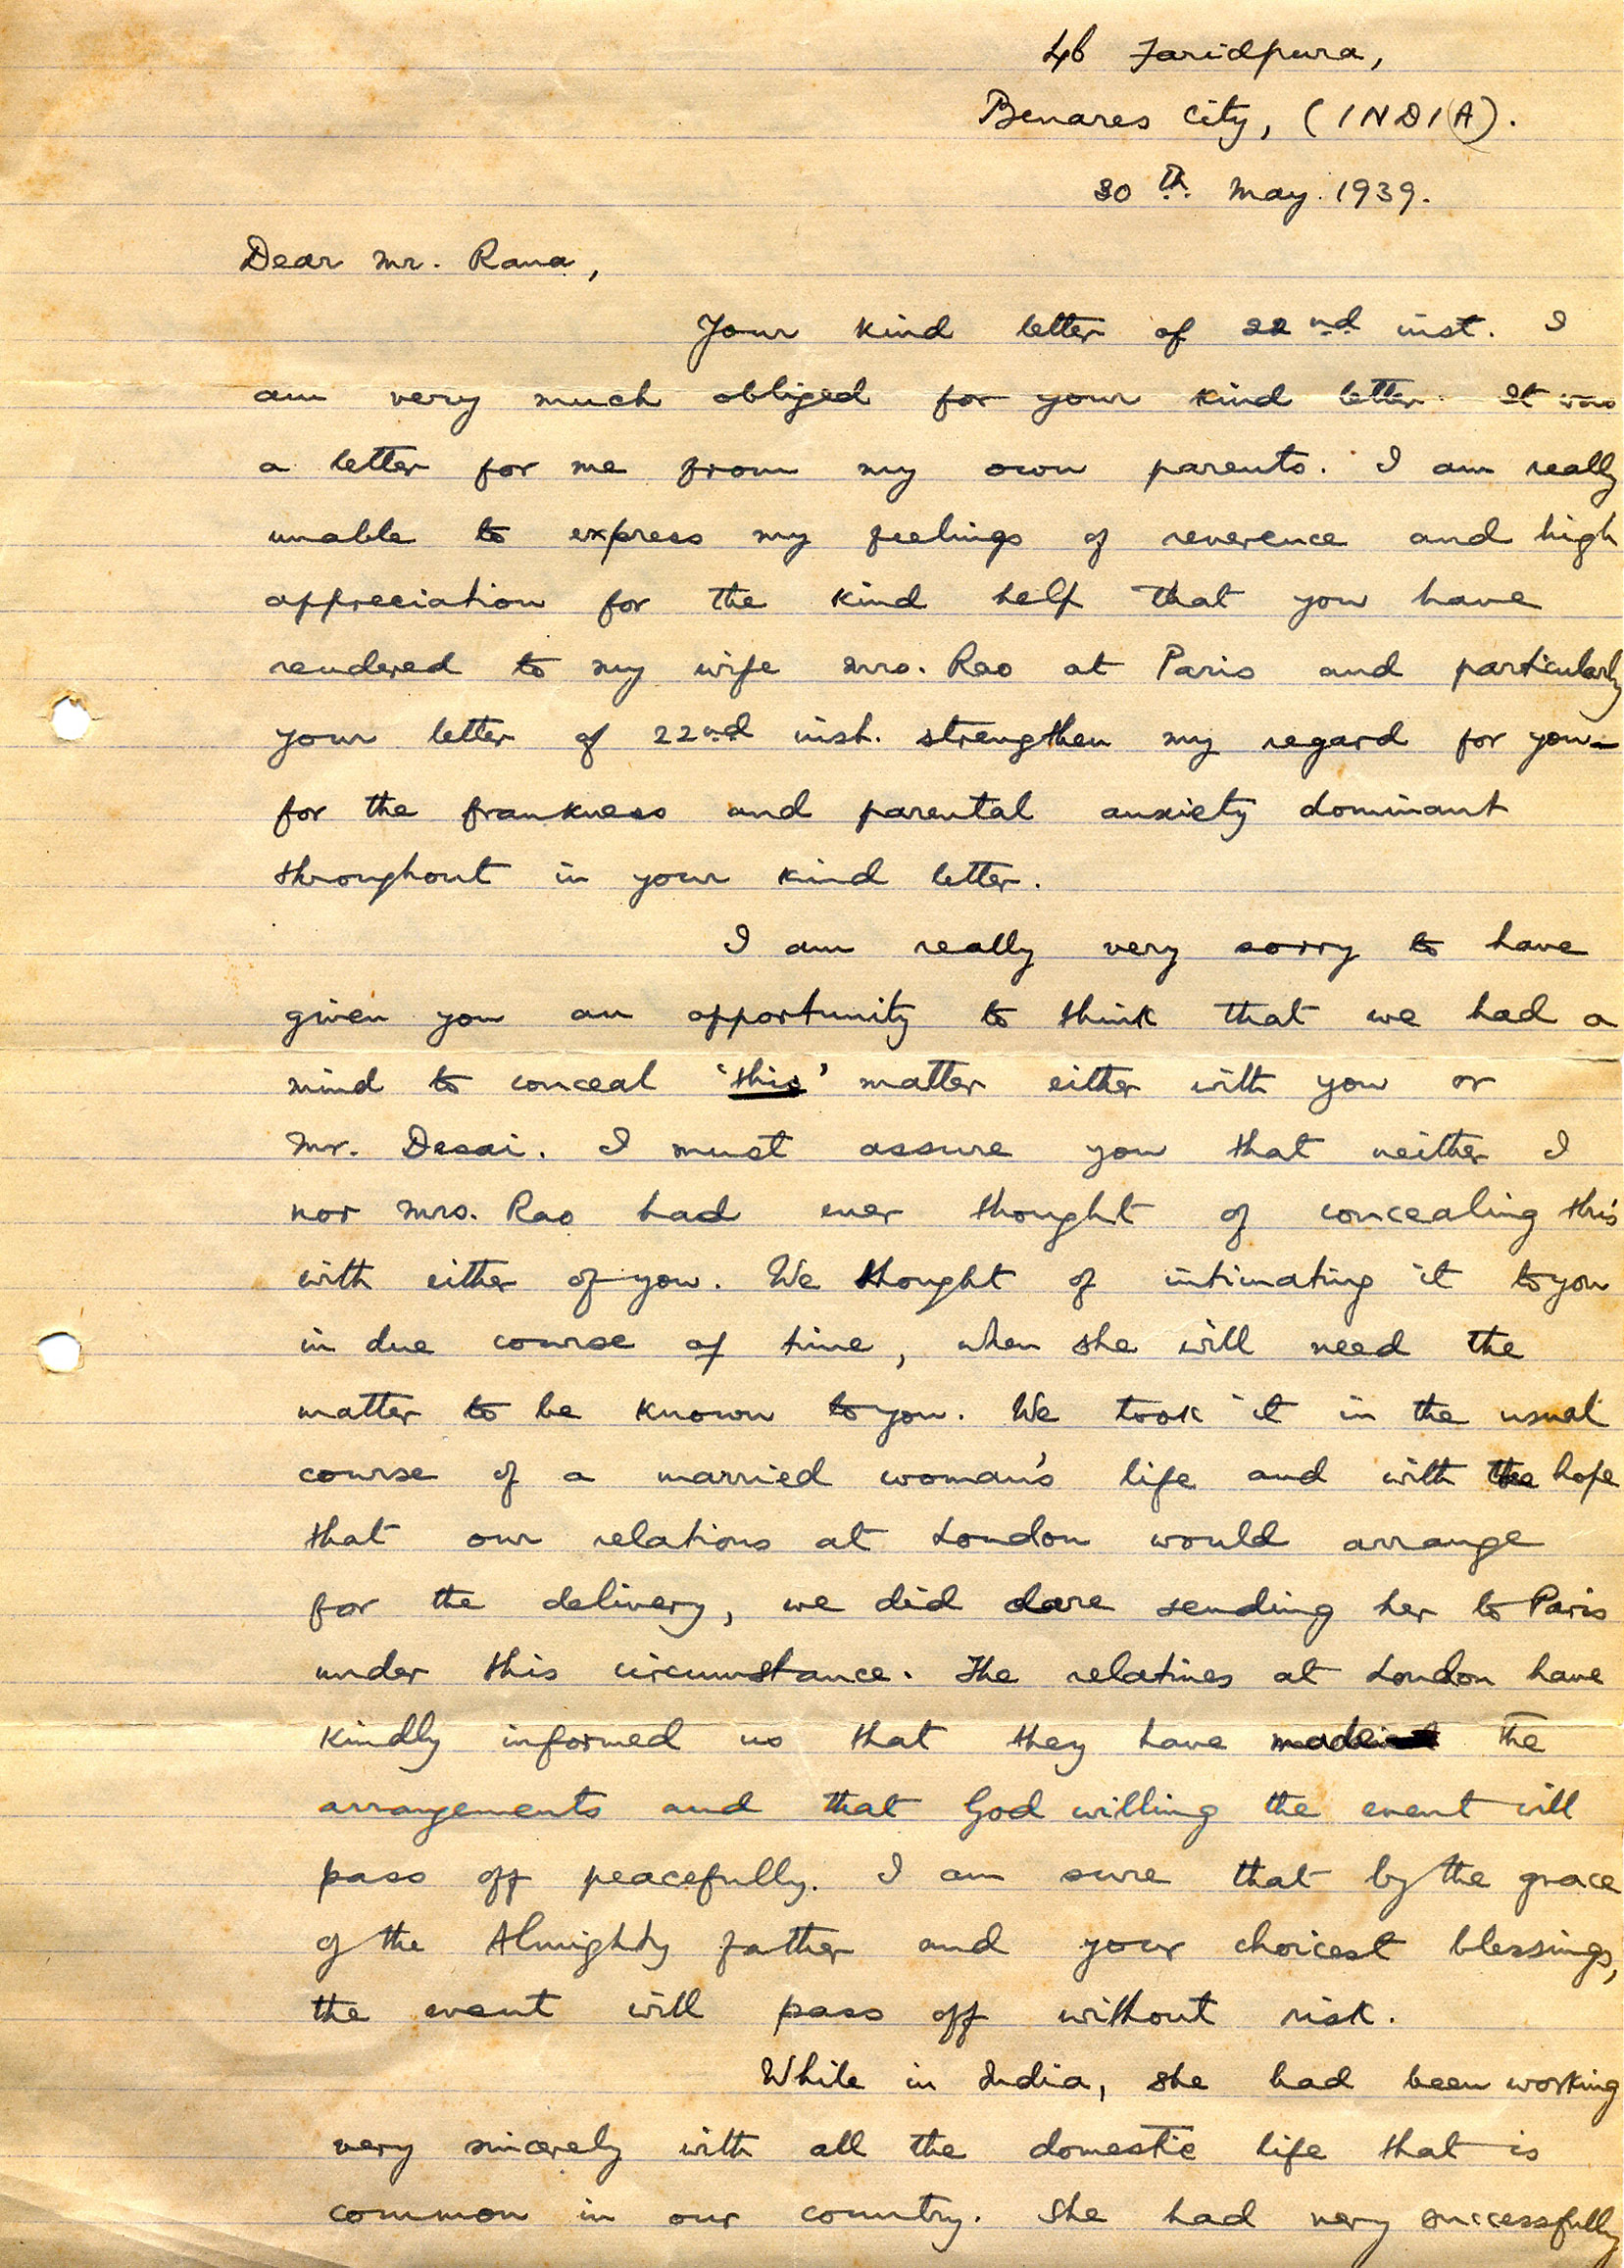 46 Faridpura,
Benares City, (INDIA).
30th May. 1939.
Dear Mr. Rana,
Your kind letter of 22nd inst. I
am very much obliged for your kind letter. It was
a letter for me from my own parents. I am really
unable to express my feelings of reverence and high
appreciation for the kind help that you have
rendered to my wife Mrs. Rao at Paris and particularly
your letter of 22nd inst. strengthen my regard for you—
for the frankness and parental anxiety dominant
throughout in your kind letter.
I am really very sorry to have
given you an opportunity to think that we had a
mind to conceal 'this' matter either with you or
Mr. Desai. I must assure you that neither I
nor Mrs. Rao had ever thought of concealing this
with either of you. We thought of intimating it to you
in due course of time, when she will need the
matter to be known to you. We took it in the usual
course of a married woman's life and with the hope
that our relations at London would arrange
for the delivery, we did dare sending her to Paris
under this circumstance. The relatives at London have
kindly informed us that they have made the
arrangements and that God willing the event will
pass off peacefully. I am sure that by the grace
of the Almighty father and your choicest blessings,
the event will pass off without risk.
While in India, she had been working
very sincerely with all the domestic life that is
common in our country. She had very successfully